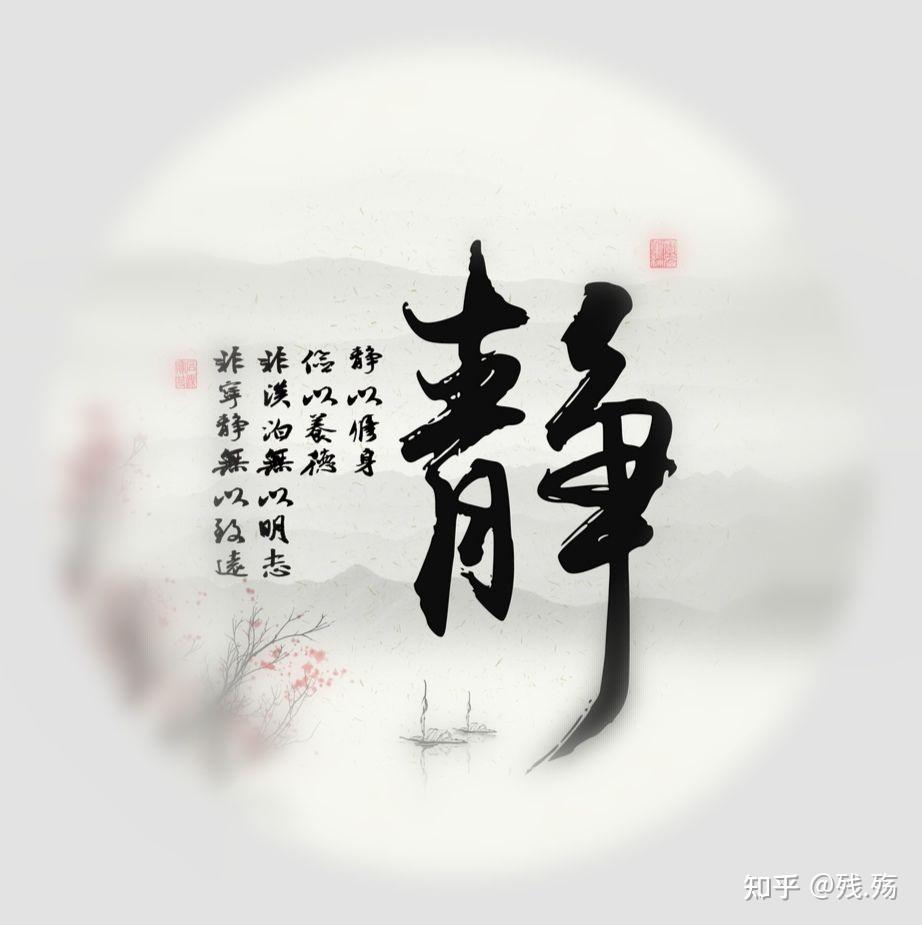 静
静以修身
俭以养德
非淡泊無以明志
非寧静無以致遠
知乎 @残.殇